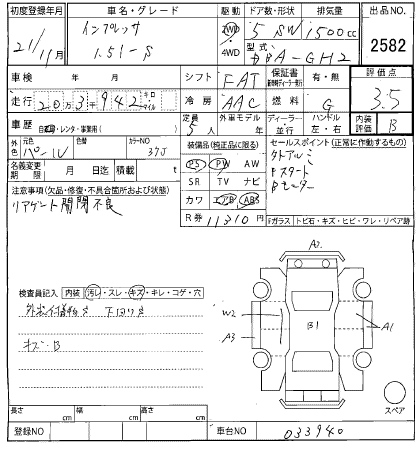 初度登録年月 車名・グレード 駆動 ドア数・形状 排気量 出品NO
21/11月 インプレッサ 1.5i-S 2WD 4WD 5 SW 1500cc 2582
型式 DBA-GH2
車検 年 月 シフト FAT 保証書 有・無 評価点
走行 20万3千942 キロ マイル 冷房 AAC 燃料 G 3.5
車歴 自家用・レンタ・事業用( ) 定員 5人 外車モデル 年 ディーラー 並行 ハンドル 左・右 内装評価 B
外色 元色 パール 色替 カラーNO 37J
装備品(純正品に限る) セールスポイント(正常に作動するもの)
PS PW AW 社外アルミ
名義変更期限 月 日迄 積載 t SR TV ナビ Pスタート
注意事項(欠品・修復・不具合箇所および状態) カワ エアB ABS
リアゲート開閉不良 R券 11310円 Fガラス トビ石・キズ・ヒビ・ワレ・リペア跡
A2
検査員記入 内装 汚レ・スレ・キズ・キレ・コゲ・穴
W2 B1 A1
A3
キズ・B
スペア
長さ cm 幅 cm 高さ cm
登録NO 車台NO 033940